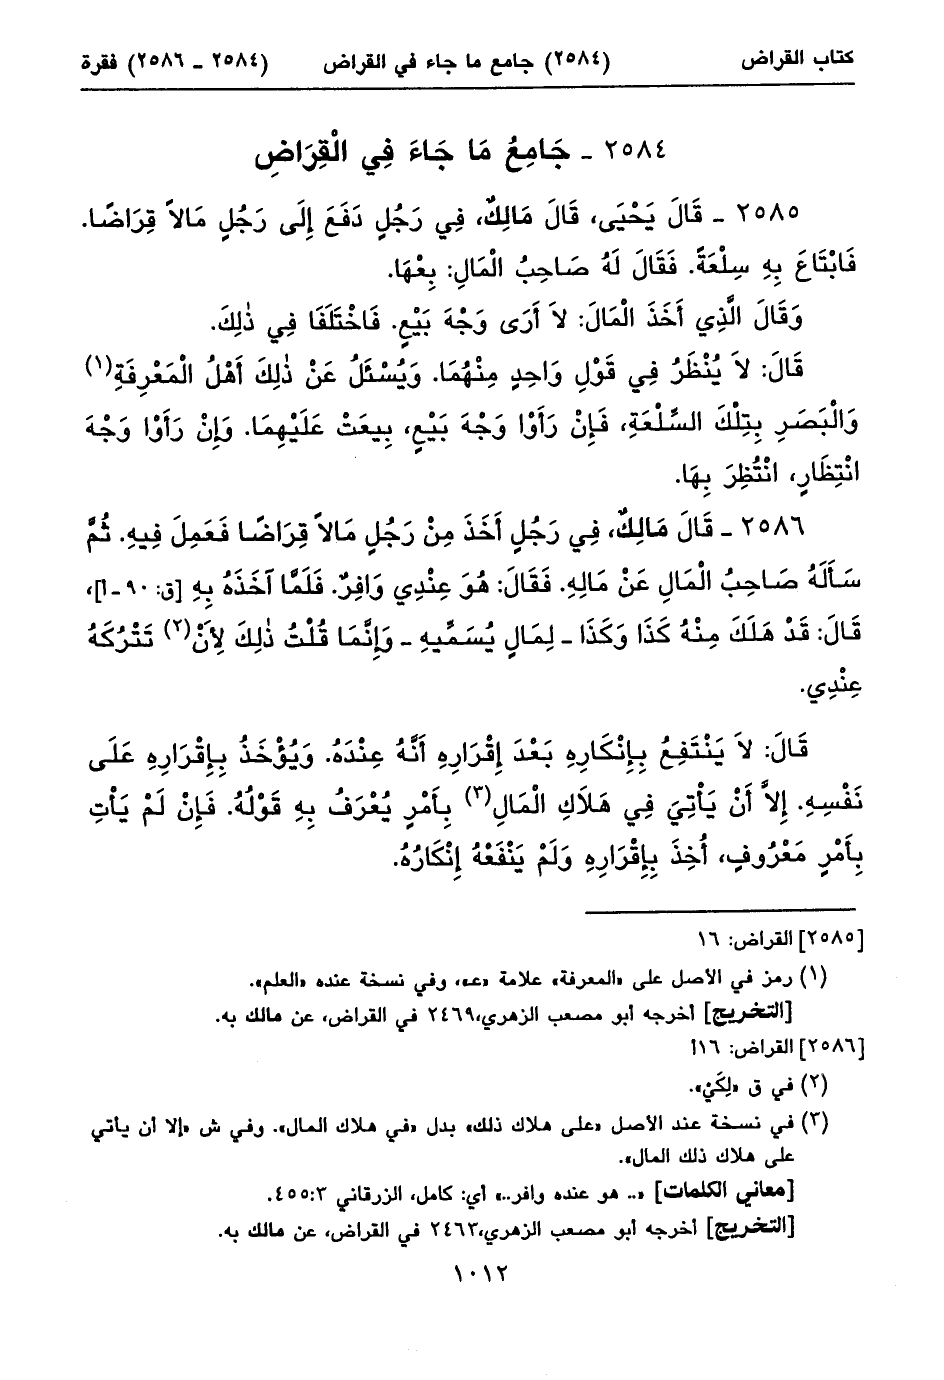 كتاب القراض (٢٥٨٤) جامع ما جاء في القراض (٢٥٨٤ - ٢٥٨٦) فقرة
٢٥٨٤ - جَامِعُ مَا جَاءَ فِي الْقِرَاضِ
٢٥٨٥ - قَالَ يَحْيَى، قَالَ مَالِكٌ، فِي رَجُلٍ دَفَعَ إِلَى رَجُلٍ مَالاً قِرَاضًا.
فَابْتَاعَ بِهِ سِلْعَةً. فَقَالَ لَهُ صَاحِبُ الْمَالِ: بِعْهَا.
وَقَالَ الَّذِي أَخَذَ الْمَالَ: لاَ أَرَى وَجْهَ بَيْعٍ. فَاخْتَلَفَا فِي ذٰلِكَ.
قَالَ: لاَ يُنْظَرُ فِي قَوْلِ وَاحِدٍ مِنْهُمَا. وَيُسْئَلُ عَنْ ذٰلِكَ أَهْلُ الْمَعْرِفَةِ(١)
وَالْبَصَرِ بِتِلْكَ السِّلْعَةِ، فَإِنْ رَأَوْا وَجْهَ بَيْعٍ، بِيعَتْ عَلَيْهِمَا. وَإِنْ رَأَوْا وَجْهَ
انْتِظَارٍ، انْتُظِرَ بِهَا.
٢٥٨٦ - قَالَ مَالِكٌ، فِي رَجُلٍ أَخَذَ مِنْ رَجُلٍ مَالاً قِرَاضًا فَعَمِلَ فِيهِ. ثُمَّ
سَأَلَهُ صَاحِبُ الْمَالِ عَنْ مَالِهِ. فَقَالَ: هُوَ عِنْدِي وَافِرٌ. فَلَمَّا آخَذَهُ بِهِ [ق: ٩٠ - أ]،
قَالَ: قَدْ هَلَكَ مِنْهُ كَذَا وَكَذَا - لِمَالٍ يُسَمِّيهِ - وَإِنَّمَا قُلْتُ ذٰلِكَ لِأَنْ(٢) تَتْرُكَهُ
عِنْدِي.
قَالَ: لاَ يَنْتَفِعُ بِإِنْكَارِهِ بَعْدَ إِقْرَارِهِ أَنَّهُ عِنْدَهُ. وَيُؤْخَذُ بِإِقْرَارِهِ عَلَى
نَفْسِهِ. إِلاَّ أَنْ يَأْتِيَ فِي هَلاَكِ الْمَالِ(٣) بِأَمْرٍ يُعْرَفُ بِهِ قَوْلُهُ. فَإِنْ لَمْ يَأْتِ
بِأَمْرٍ مَعْرُوفٍ، أُخِذَ بِإِقْرَارِهِ وَلَمْ يَنْفَعْهُ إِنْكَارُهُ.
[٢٥٨٥] القراض: ١٦
(١) رمز في الأصل على «المعرفة» علامة «عـ»، وفي نسخة عنده «العلم».
[التخريج] أخرجه أبو مصعب الزهري،٢٤٦٩ في القراض، عن مالك به.
[٢٥٨٦] القراض: ١٦أ
(٢) في ق «لِكَيْ».
(٣) في نسخة عند الأصل «على هلاك ذلك» بدل «في هلاك المال». وفي ش «إلا أن يأتي
على هلاك ذلك المال».
[معاني الكلمات] «.. هو عنده وافر..» أي: كامل، الزرقاني ٣:‏٤٥٥.
[التخريج] أخرجه أبو مصعب الزهري،٢٤٦٣ في القراض، عن مالك به.
١٠١٢